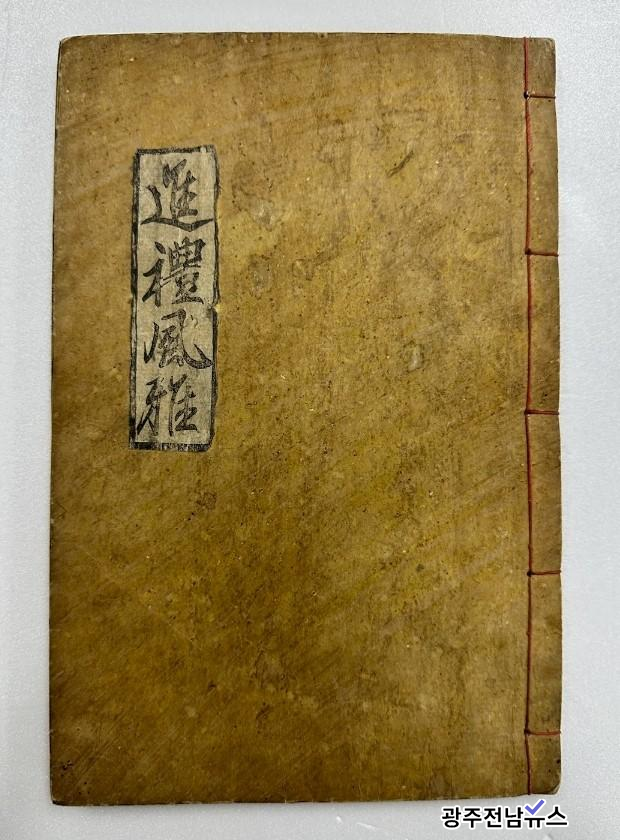 進禮風雅
광주전남뉴스